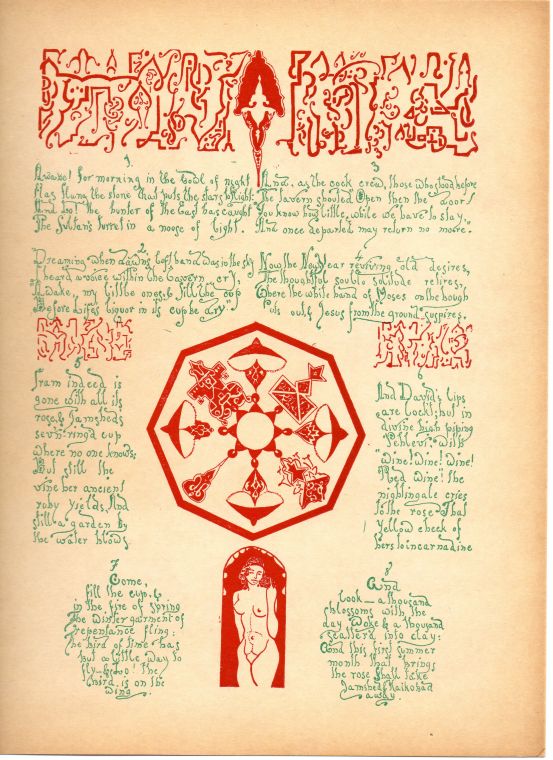 1
Awake! for morning in the bowl of night
Has flung the stone that puts the stars to flight:
And lo! the hunter of the East has caught
The Sultan's turret in a noose of light.
2
Dreaming when dawn's left hand was in the sky
I heard a voice within the tavern cry,
"Awake, my little ones, & fill the cup
Before Life's liquor in its cup be dry."
3
And, as the cock crew, those who stood before
The tavern shouted "Open then the door!
You know how little while we have to stay,
And once departed may return no more."
4
Now the New Year reviving old desires,
The thoughtful soul to solitude retires,
Where the white hand of Moses on the bough
Puts out, & Jesus from the ground suspires.
5
Iram indeed is
gone with all its
rose, & Jamshed's
sev'n-ring'd cup
where no one knows;
But still the
vine her ancient
ruby yields, And
still a garden by
the water blows.
6
And David's lips
are lock't; but in
divine high piping
Pehlevi, with
"Wine! Wine! Wine!
Red Wine!" the
nightingale cries
to the rose That
Yellow cheek of
hers to incarnadine
7
Come,
fill the cup, &
in the fire of Spring
The Winter garment of
repentance fling:
The bird of time has
but a little way to
fly—& Lo! the
bird is on the
wing.
8
And
look—a thousand
blossoms with the
day Woke & a thousand
scatter'd into clay:
And this first summer
month that brings
the rose Shall take
Jamshed & Kaikobad
away.